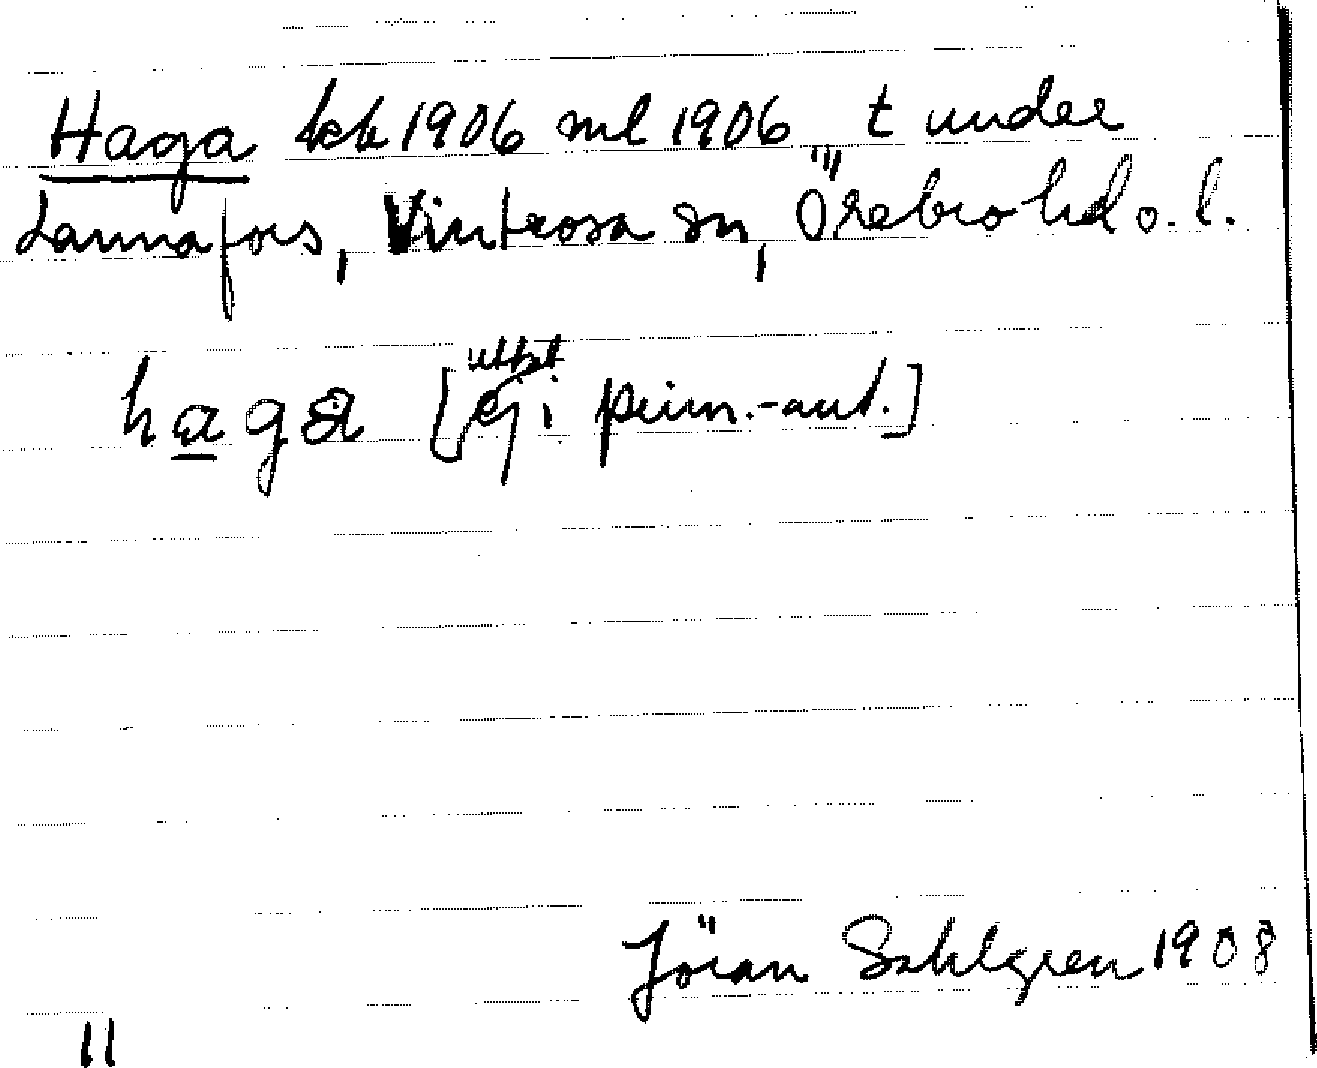 Haga kck 1906 ml 1906 t under
Lannafors, Vintrosa sn, Örebro hd o. l.
haga [ej i prim.-aut.]
Jöran Sahlgren 1908
11